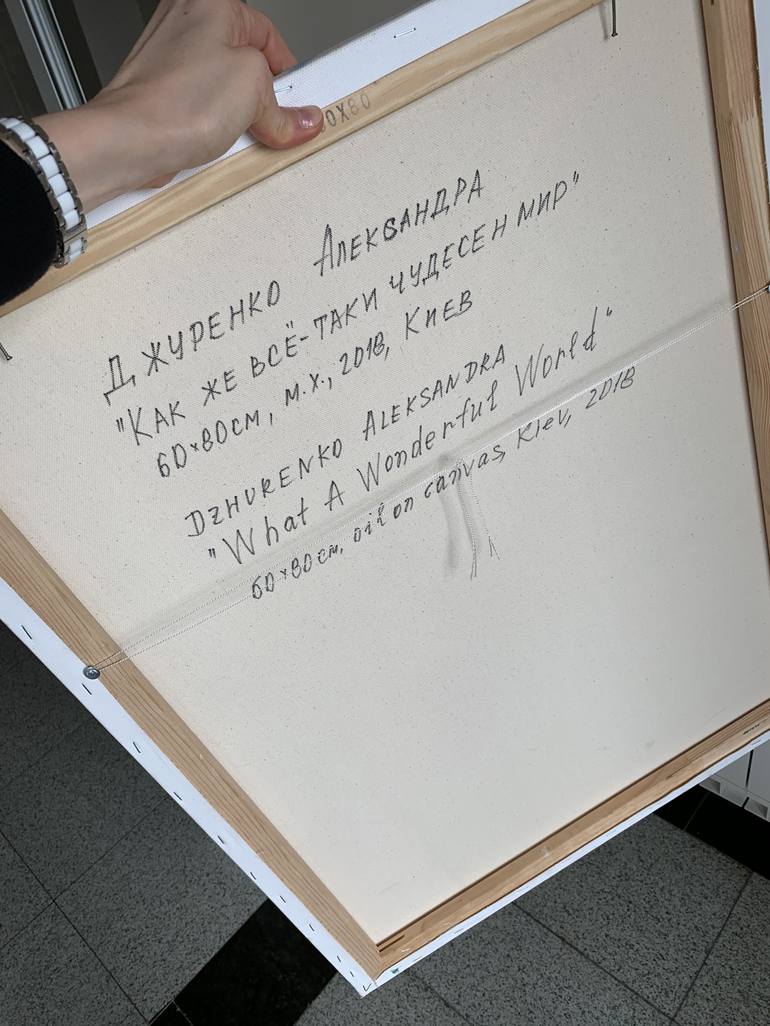 0X80
Джуренко Александра
"Как же всё-таки чудесен мир"
60×80см, м.х., 2018, Киев
Dzhurenko Aleksandra
"What A Wonderful World"
60×80см, oil on canvas, Kiev, 2018